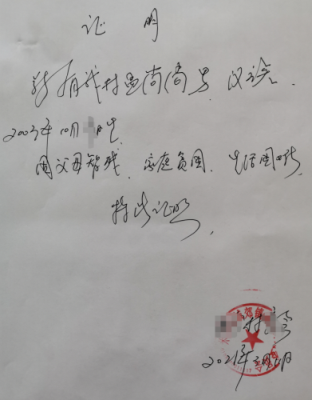 证 明
兹有我村 尚 男,汉族.
2003年10月 日生
因父母智残、家庭贫困、生活困难
特此证明
村
2021年 月 日